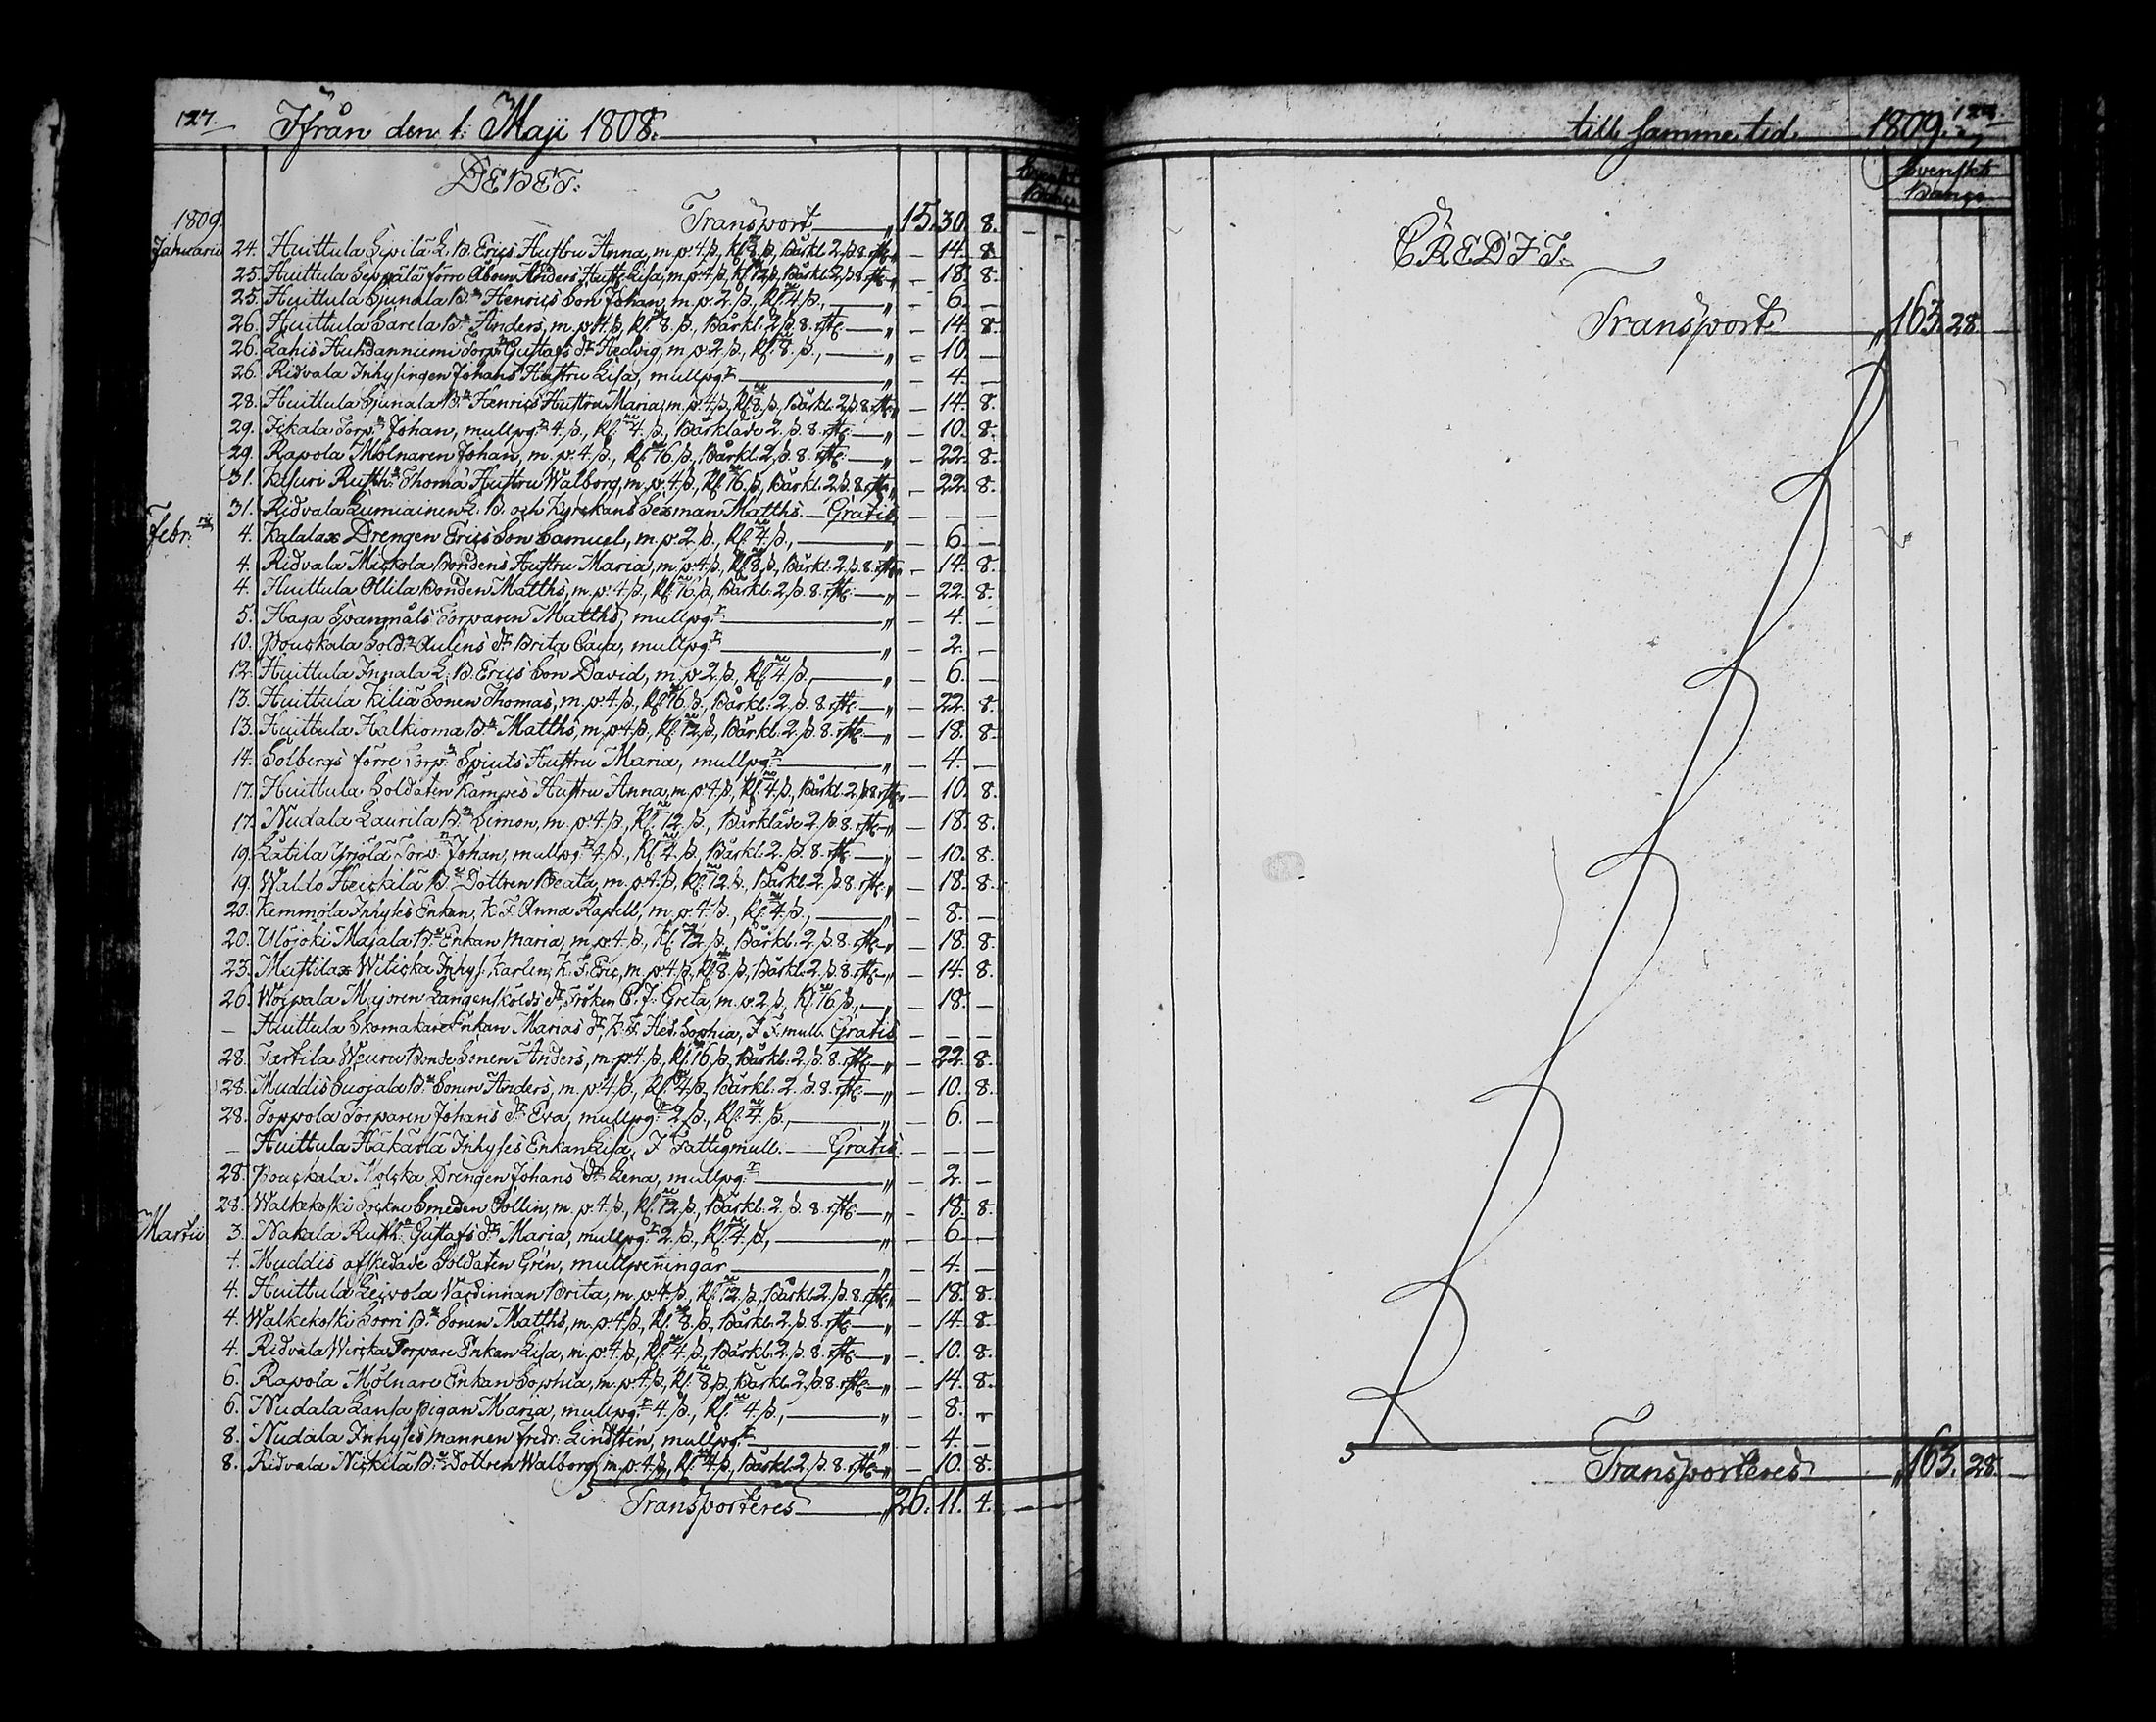 127.
Ifrån den 1. Maji 1808.
DEBET.
1809. Transport " 15. 30. 8.
Januarii 24. Huittula Sipilä L. B. Erics Hustru Anna, m. p. 4 ß, Kl. 8 ß, Bårkl. 2 ß 8 rst. " — 14. 8.
25. Huittula Seppälä förre Åboen Anders Hust. Lisa, m. p. 4 ß, Kl. 12 ß, Bårkl. 2 ß 8 rst. " — 18. 8.
25. Huittula Junala B:n Henrics Son Johan, m. p. 2. ß., Kl. 4 ß., — " — 6. —
26. Huittula Sarela B:n Anders, m. p. 4. ß, Kl. 8. ß., Bårkl: 2 ß. 8. rst. — " — 14. 8.
26. Lahis Huhdanniemi Torp:n Gustafs d:r Hedvig, m. p. 2. ß., Kl. 8. ß., — " — 10. —
26. Ridvala Inhysingen Johans Hustru Lisa, mullpg:r — " — 4. —
28. Huittula Junala B:n Henrics Hustru Maria, m. p. 4. ß, Kl. 8. ß., Bårkl: 2 ß. 8. rst. " — 14. 8.
29. Jckala Torp:n Johan, mullpg:r 4. ß., Kl. 4. ß., Bårkläde 2. ß. 8. rst. — " — 10. 8.
29. Rapola Mölnaren Johan, m. p. 4. ß., Kl. 16 ß., Bårkl: 2. ß. 8. rst. — " — 22. 8.
31. Kelsuri Rusth:n Thoma Hustru Walborg, m. p. 4 ß., Kl. 16. ß., Bårkl: 2 ß. 8. rst. " — 22. 8.
31. Ridvala Lumiainen L. B. och Kyrckans Sexman Matths. — Gratis — — —
Febr: 4. Kalalax Drengen Erics Son Samuel, m. p. 2. ß., Kl. 4 ß., — " — 6. —
4. Ridvala Mickola Bondens Hustru Maria, m. p. 4 ß., Kl. 8 ß., Bårkl. 2 ß. 8. rst. " — 14. 8.
4. Huittula Ollila Bonden Matths, m. p. 4 ß., Kl. 16 ß., Bårkl: 2. ß. 8. rst. — " — 22. 8.
5. Haga Spanmåls Torparen Matths, mullpg:r — " — 4. —
10. Pouskala Sold:n Aulins d:r Brita Caisa, mullpg:r — " — 2. —
12. Huittula L. B. Erics Son David, m. p. 2 ß., Kl. 4 ß., — " — 6. —
13. Huittula Kiliä Sonen Thomas, m. p. 4. ß., Kl. 16 ß., Bårkl: 2. ß. 8. rst. — " — 22. 8.
13. Huittula Halkioma B:n Matths, m. p. 4 ß., Kl. 12. ß, Bårkl. 2. ß. 8. rst. — " — 18. 8.
14. Solbergs förre Torp:n Spiuts Hustru Maria, mullpg:r — " — 4. —
17. Huittula Soldaten Kämpes Hustru Anna, m. p. 4 ß., Kl. 4. ß., Bårkl. 2. ß 8 rst. " — 10. 8.
17. Nudala Laurila B:n Simon, m. p. 4. ß., Kl. 12. ß., Bårkläde 2. ß. 8. rst. — " — 18. 8.
19. Lätilä Yrjölä Torp:n Johan, mullpg:r 4. ß., Kl. 4. ß., Bårkl: 2. ß. 8. rst. — " — 10. 8.
19. Waldo Heickilä B:n Dottren Beata, m. p. 4. ß., Kl. 12. ß., Bårkl. 2. ß. 8. rst. " — 18. 8.
20. Kemmola Inhyses Enkan, K. F. Anna Rapell, m. p. 4. ß., Kl. 4. ß., — " — 8. —
20. Ulojoki Majala B:n Enkan Maria, m. p. 4. ß., Kl. 12. ß., Bårkl. 2. ß. 8. rst. " — 18. 8.
23. Mustilax Witicka Inhys. Karlen, K. F. Eric, m. p. 4. ß., Kl. 8. ß., Bårkl. 2. ß. 8. rst. " — 14. 8.
26. Woipala Majoren Langenskölds d:r Fröken C. J. Greta, m. p. 2 ß., Kl. 16 ß., — " — 18. —
— Huittula Skomakare Enkan Marias d:r, K. F. Hed. Sophia, F. F. mull. Gratis — — —
28. Tarttila Weuru Bonde Sonen Anders, m. p. 4 ß., Kl. 16 ß., Bårkl: 2. ß. 8. rst. " — 22. 8.
28. Muddis Suojala B:n Sonen Anders, m. p. 4. ß., Kl. 4 ß., Bårkl: 2. ß. 8. rst. — " — 10. 8.
28. Toppola Torparen Johans d:r Eva, mullpg:r 2. ß., Kl. 4. ß., — " — 6. —
— Huittula Hakarla Inhyses Enkan Lisa, F. Fattigmull. — Gratis. — — —
28. Pouskala Drengen Johans d:r Lena, mullpg:r — " — 2. —
28. Walkekoski Sockne Smeden Söllin, m. p. 4. ß., Kl. 12. ß., Bårkl: 2. ß. 8. rst. — " — 18. 8.
Martii 3. Nakala Rusth:n Gustafs d:r Maria, mullpg:r 2. ß., Kl. 4. ß., — " — 6. —
4. Muddis afskedade Soldaten Grén, mullpeningar — " — 4. —
4. Huittula Leivola Värdinnan Brita, m. p. 4. ß., Kl. 12. ß., Bårkl. 2. ß. 8. rst. " — 18. 8.
4. Walkekoski Sorri B:n Sonen Matths, m. p. 4 ß., Kl. 8 ß., Bårkl: 2. ß. 8. rst. — " — 14. 8.
4. Ridvala Wirska Torpare Enkan Lisa, m. p. 4. ß., Kl. 4. ß., Bårkl. 2. ß. 8. rst. — " — 10. 8.
6. Rapola Mölnare Enkan Sophia, m. p. 4. ß., Kl. 8 ß., Bårkl. 2. ß. 8. rst. — " — 14. 8.
6. Nudala Lansa pigan Maria, mullpg:r 4. ß., Kl. 4. ß., — " — 8. —
8. Nudala Inhyses mannen Fredr: Lindstén, mullpg:r — " — 4. —
8. Ridvala Nickilä B:n Dottren Walborg, m. p. 4. ß., Kl. 4 ß., Bårkl. 2. ß. 8. rst. " — 10. 8.
Transporteres " 26. 11. 4.
till samme tid. 1809. 127.
Svenskt
Banco
CREDIT.
Transport " 163. 28. —
Transporteres " 163. 28. —